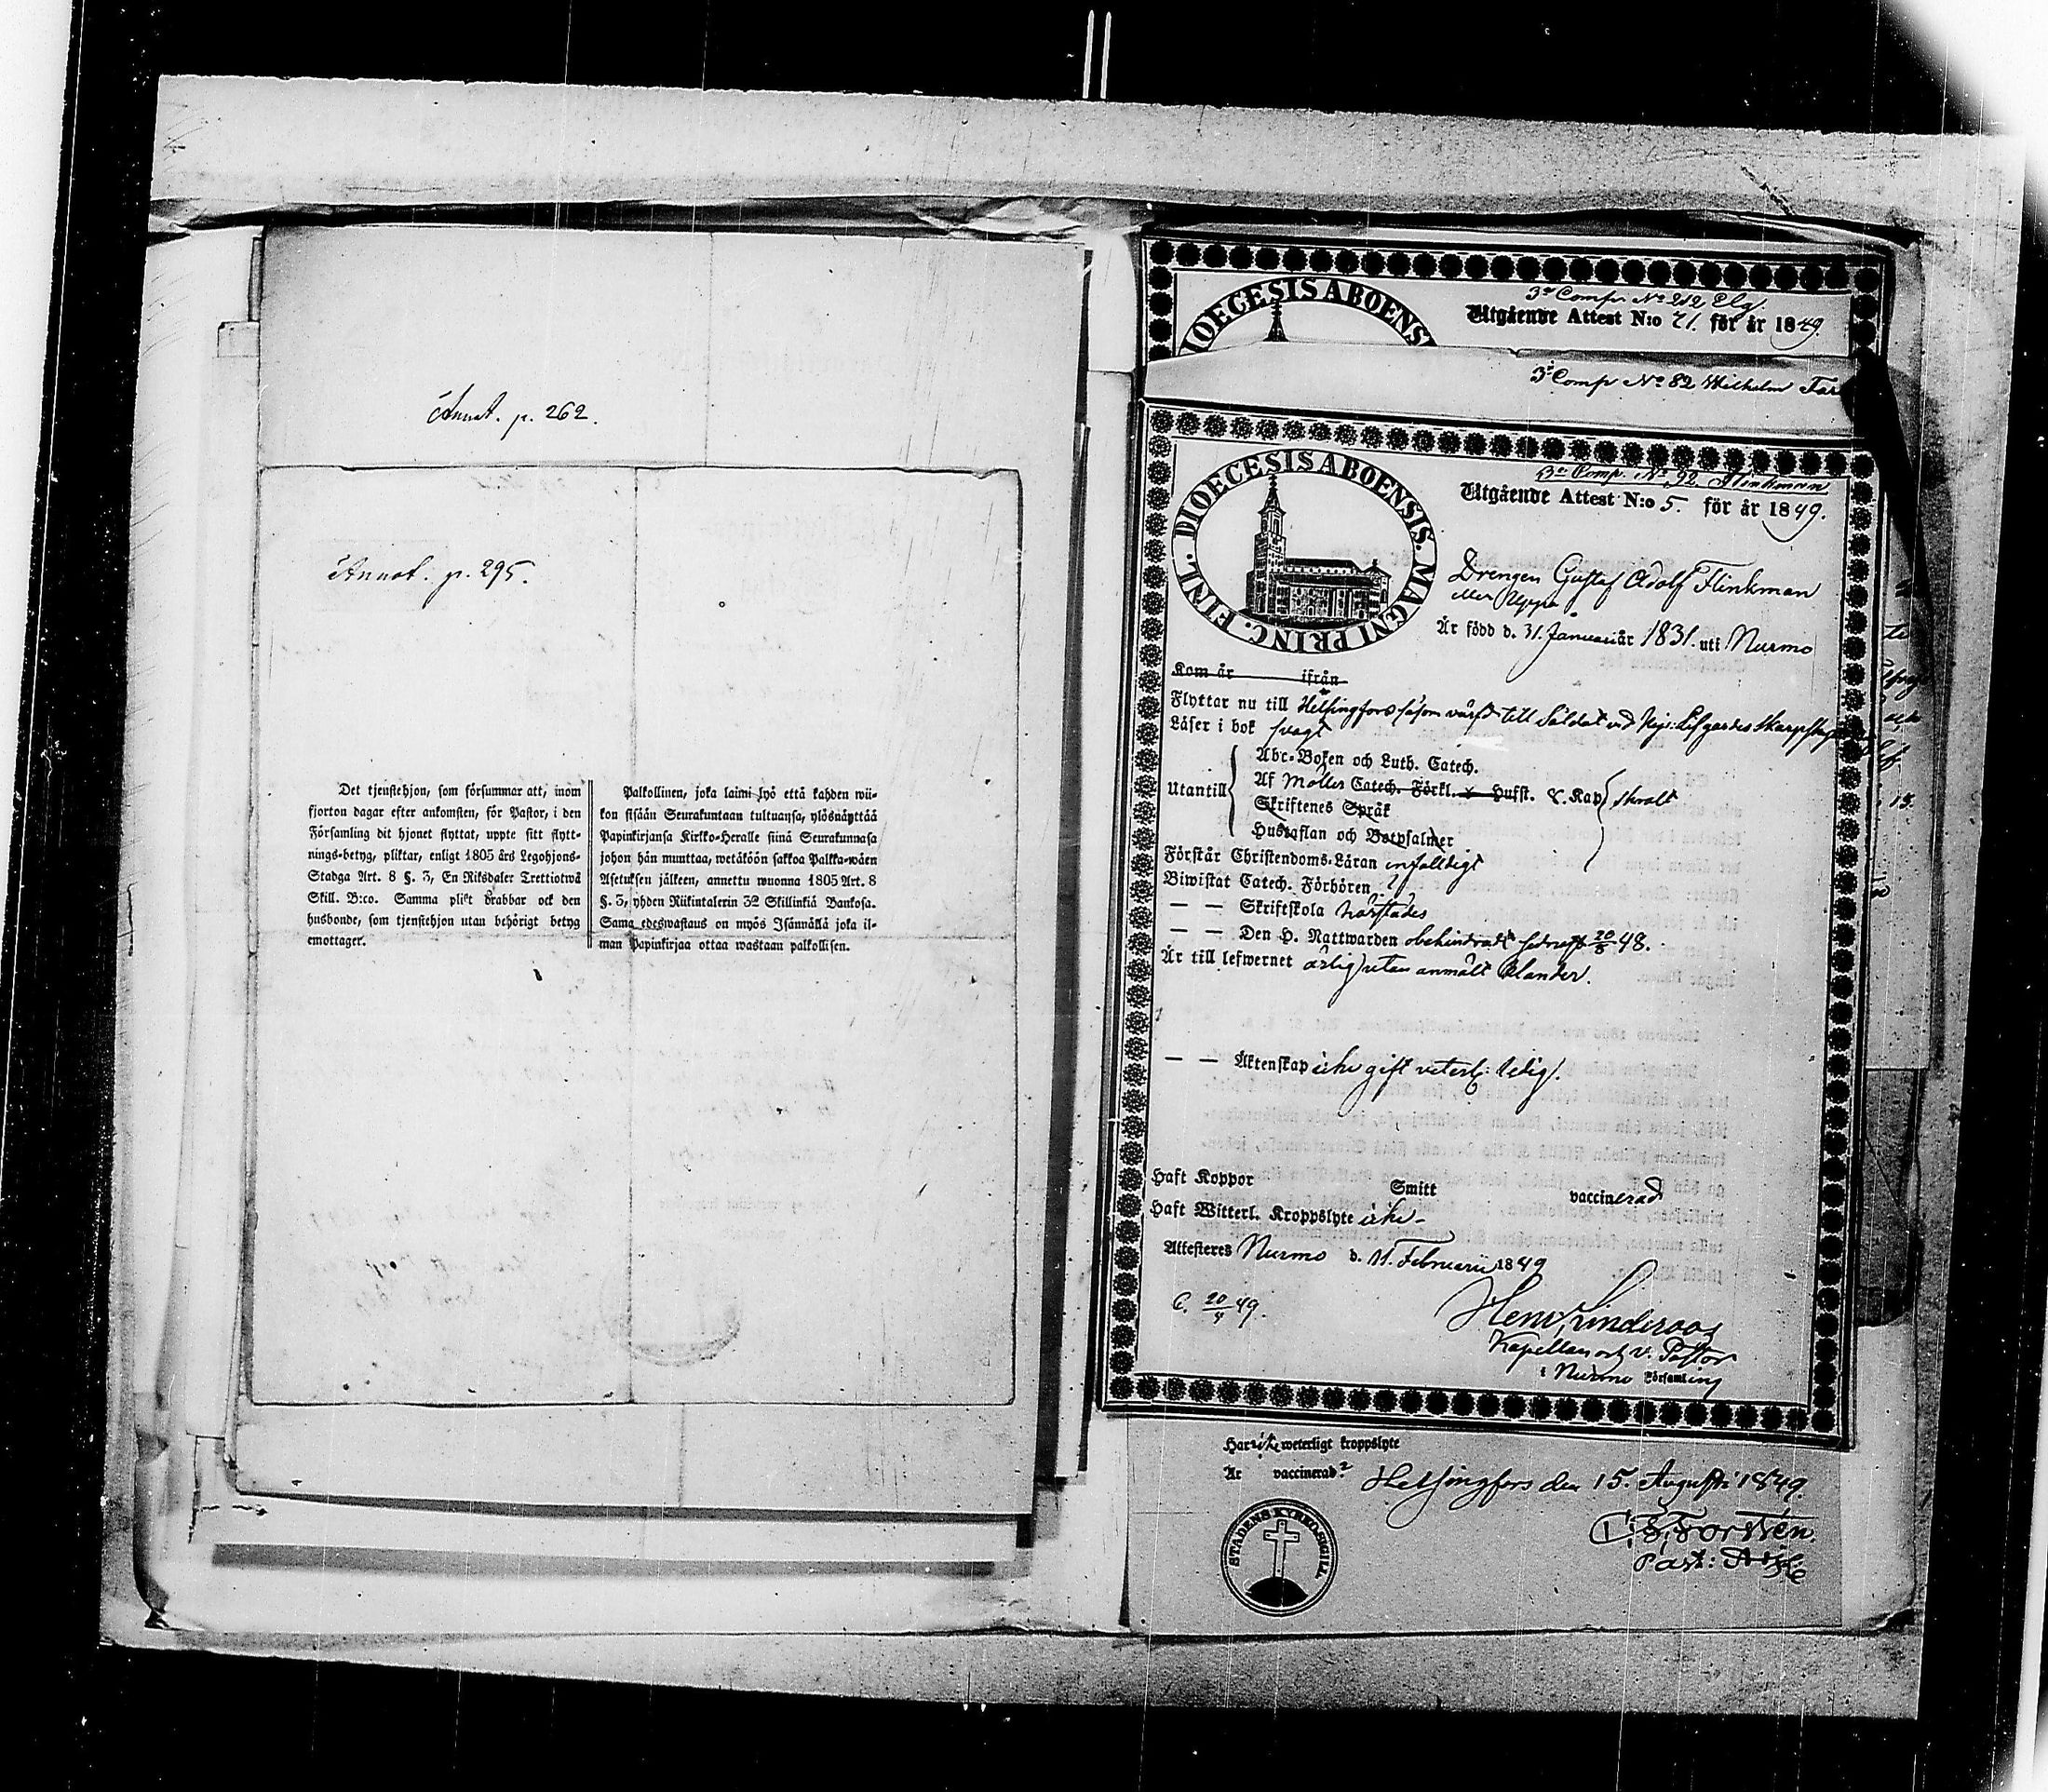 Annot. p. 262.
Annot. p. 295.
Det tjenstehjon, som försummar att, inom
fjorton dagar efter ankomsten, för Pastor, i den
Församling dit hjonet flyttat, uppte sitt flytt-
nings-betyg, pliktar, enligt 1805 års Legohjons-
Stadga Art. 8 §. 3, En Riksdaler Trettiotwå
Skill. B:co. Samma plikt drabbar ock den
husbonde, som tjenstehjon utan behörigt betyg
emottager.
Palkollinen, joka laimi lyö että kahden wii-
kon sisään Seurakuntaan tultuansa, ylösnäyttää
Papinkirjansa Kirkko-Herralle siinä Seurakunnasa
johon hän muuttaa, wetäköön sakkoa Palkka-wäen
Asetuksen jälkeen, annettu wuonna 1805 Art. 8
§. 3, yhden Riikintalerin 32 Skillinkiä Bankosa.
Sama edeswastaus on myös Isännällä joka il-
man Papinkirjaa ottaa wastaan palkollisen.
DIOECESIS ABOENS
3e Comp. No 212 Elg.
Utgående Attest N:o 71. för år 1849.
3e Comp No 82 Wilhelm
DIOECESIS ABOENSIS. MAGNI PRINC. FINL.
3e Comp. No 92 Flinkman
Utgående Attest N:o 5. för år 1849.
Drengen Gustaf Adolf Flinkman
eller Uppa
Är född d. 31. Januari år 1831. uti Nurmo
Kom år ifrån
Flyttar nu till Helsingfors såsom värfd till Soldat vid Kejs: Lifgardes
Läser i bok svagt
Utantill
Abc-Boken och Luth. Catech.
Af Möllers Catech. Förkl. Hufst. &. Kap skralt
Skriftenes Språk
Hustaflan och Botpsalmer
Förstår Christendoms-Läran enfalldigt
Biwistat Catech. Förhören
— — Skriftskola härstädes
— — Den H. Nattwarden obehindradt sednast 20/8 48.
Är till lefwernet ärlig utan anmält klander.
— — Äktenskap icke gift veterl: ledig.
Haft Koppor Smitt vaccinerad
Haft Witterl. Kroppslyte icke
Attesteres Nurmo d. 11. Februarii 1849
C. 20/4 49.
Henr. Linderoos
Kapellan och v. Pastor
i Nurmo Församling
Har icke weterligt kroppslyte
Är vaccinerad?
Helsingfors den 15. Augusti 1849.
STADENS KYRKO-SIGILL
Forstén.
Past: